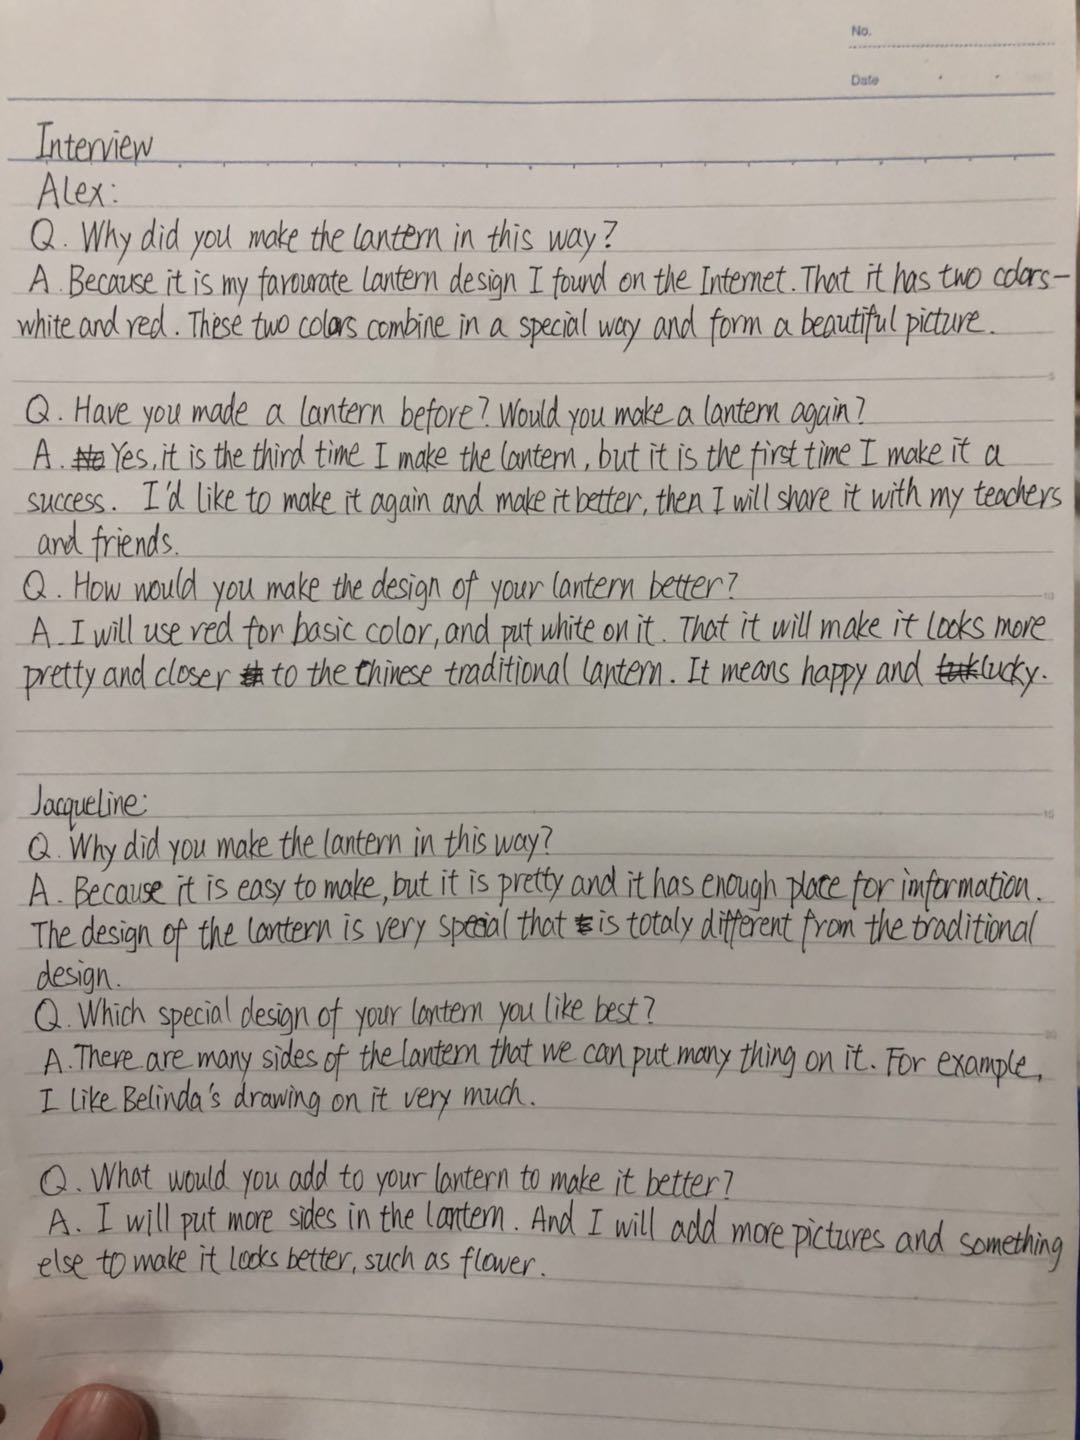 No.
Date
Interview
Alex:
Q. Why did you make the lantern in this way?
A. Because it is my favourate lantern design I found on the Internet. That it has two colors-
white and red. These two colors combine in a special way and form a beautiful picture.
5
Q. Have you made a lantern before? Would you make a lantern again?
A. Yes, it is the third time I make the lantern, but it is the first time I make it a
success. I'd like to make it again and make it better, then I will share it with my teachers
and friends.
Q. How would you make the design of your lantern better?
10
A. I will use red for basic color, and put white on it. That it will make it looks more
pretty and closer to the Chinese traditional lantern. It means happy and lucky.
Jacqueline:
15
Q. Why did you make the lantern in this way?
A. Because it is easy to make, but it is pretty and it has enough place for imformation.
The design of the lantern is very special that is totaly different from the traditional
design.
Q. Which special design of your lantern you like best?
20
A. There are many sides of the lantern that we can put many thing on it. For example,
I like Belinda's drawing on it very much.
Q. What would you add to your lantern to make it better?
A. I will put more sides in the lantern. And I will add more pictures and something
else to make it looks better, such as flower.